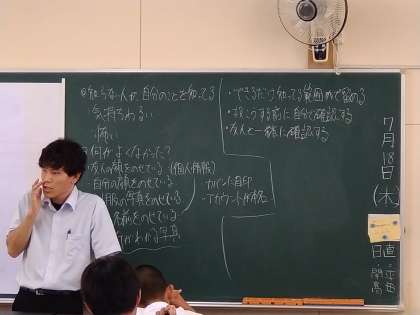 知らない人が、自分のことを知ってる
気持ちわるい
怖い
何がよくなかった？
友人の顔をのせている (個人情報)
自分の顔をのせている
制服の写真をのせている
名前をのせている
がわかる写真
カバンに目印
アカウントが本名
・できるだけ知ってる範囲内で留める
・投こうする前に自分で確認する
・友人と一緒に確認する
7月18日(木)
日直